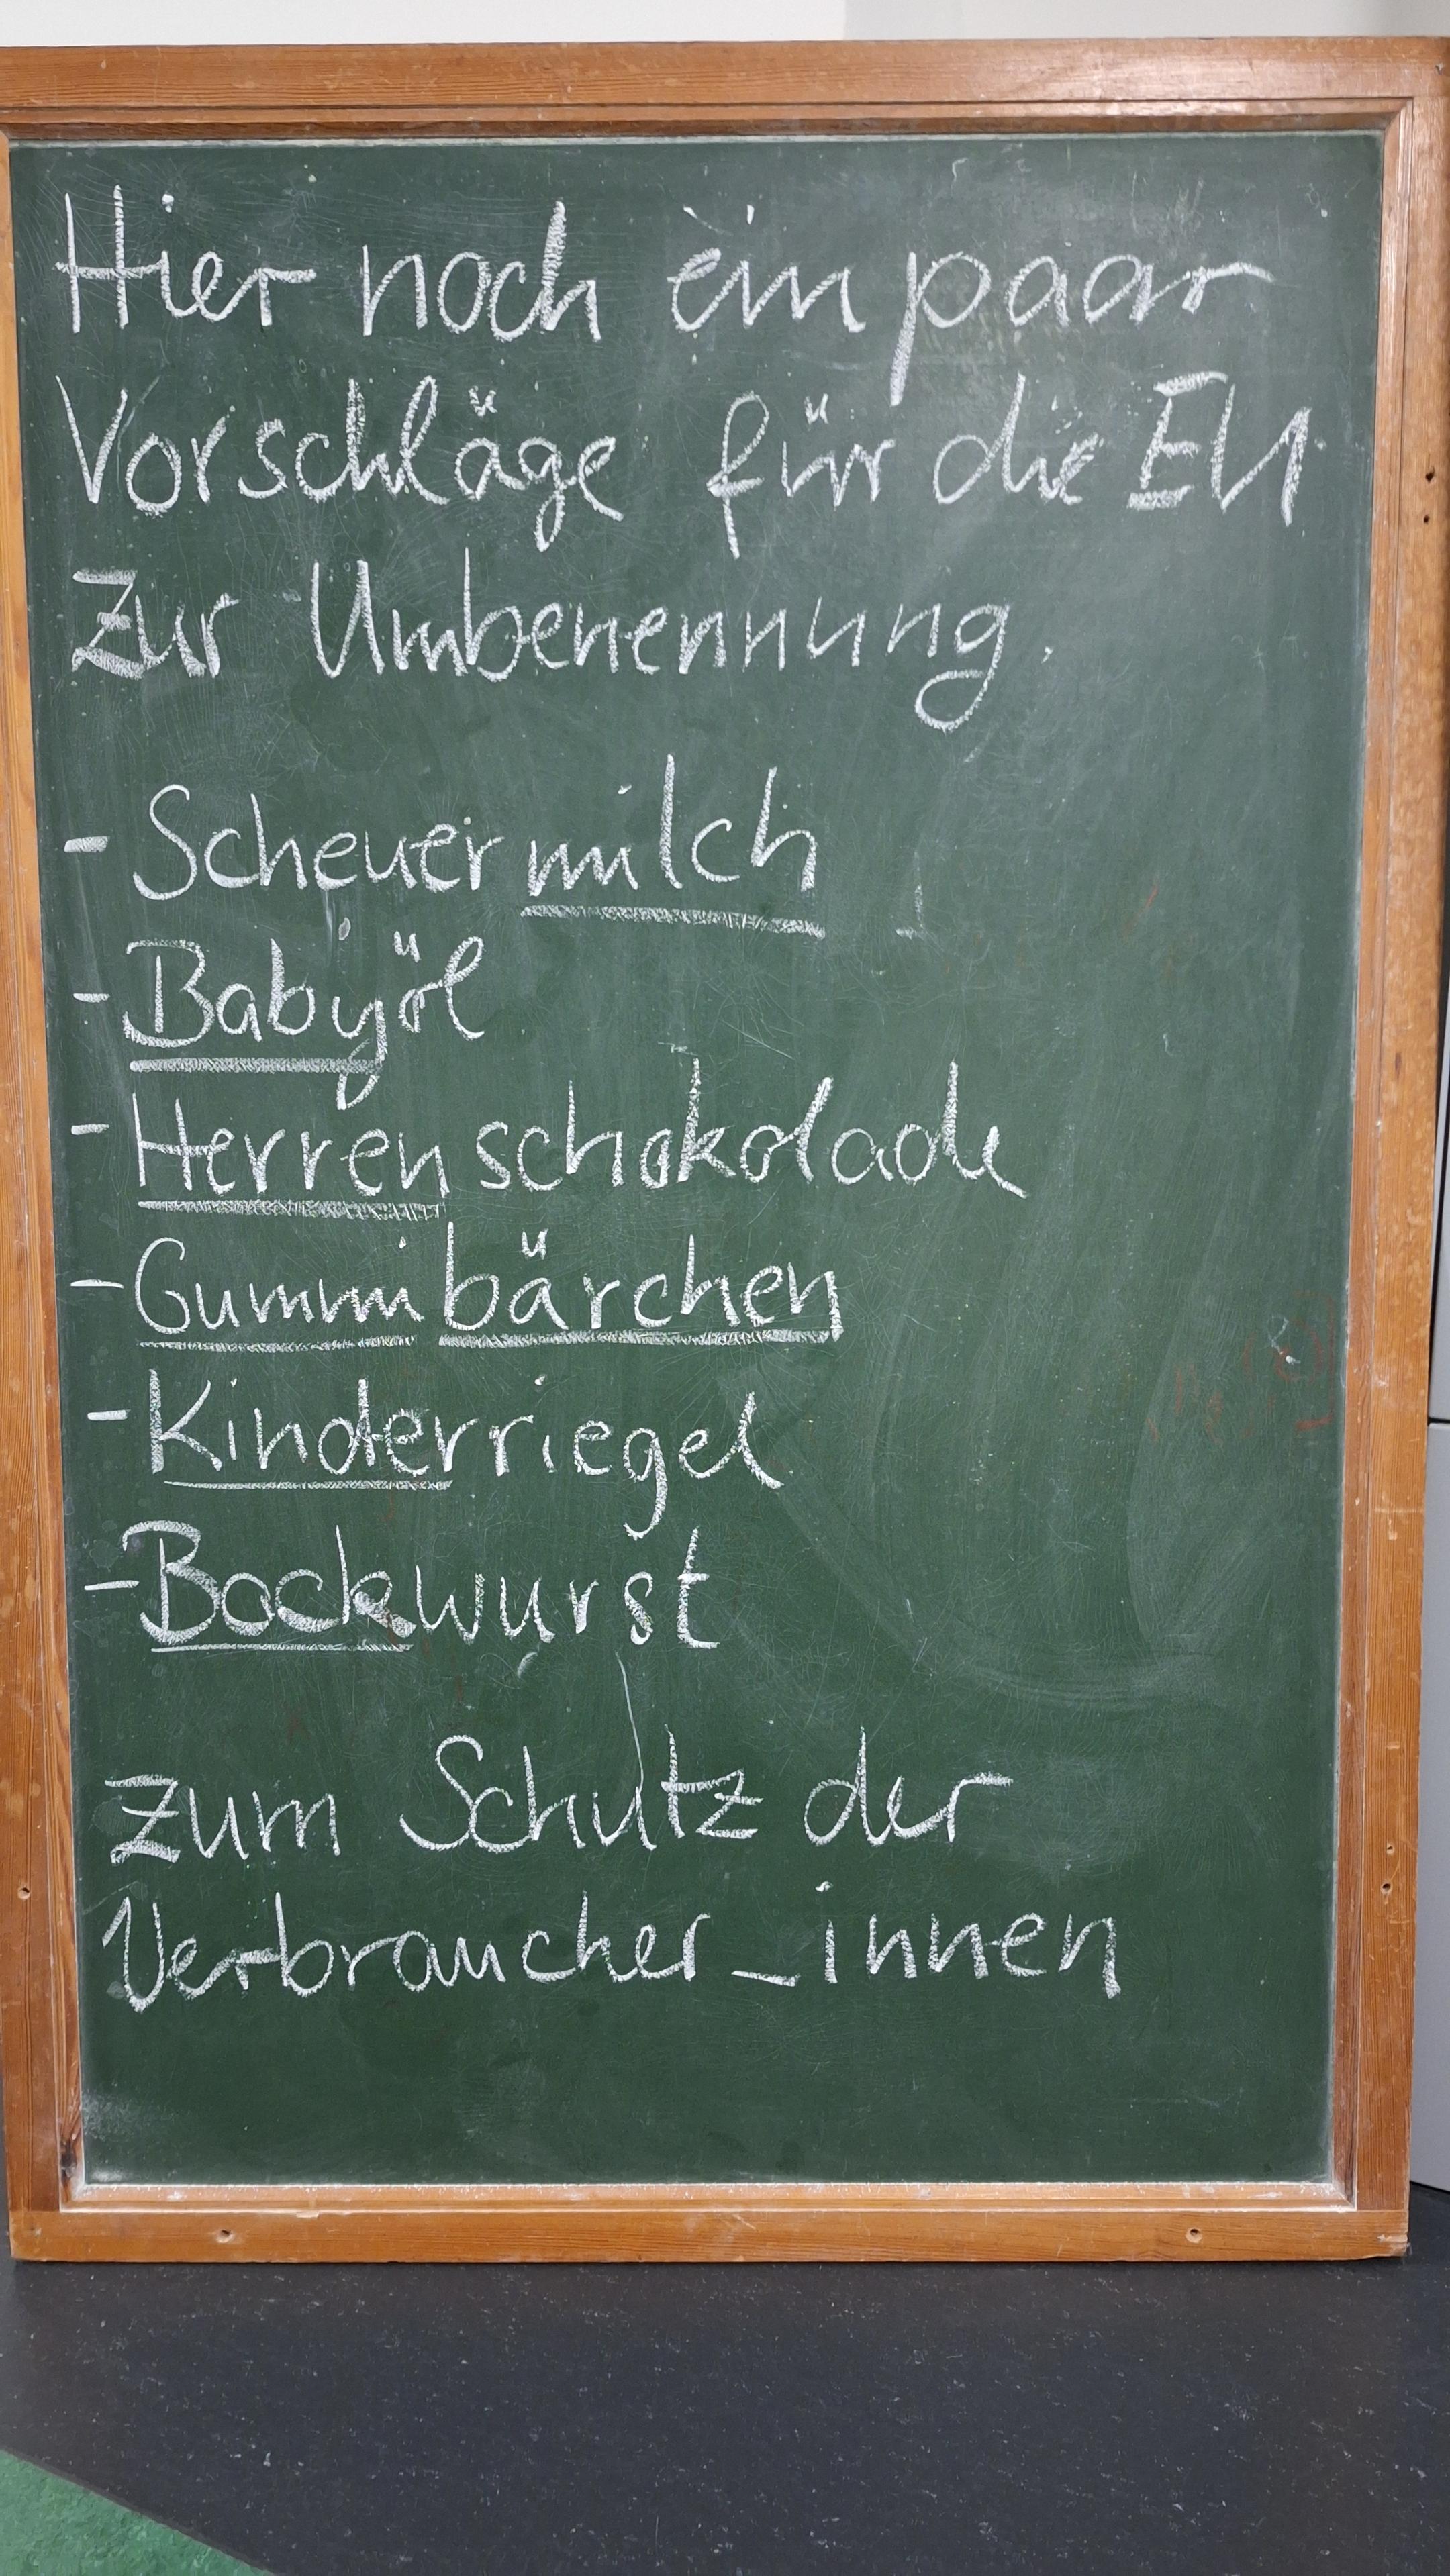 Hier noch ein paar
Vorschläge für die EU
Zur Umbenennung.
- Scheuermilch
- Babyöl
- Herrenschokolade
- Gummibärchen
- Kinderriegel
- Bockwurst
Zum Schutz der
Verbraucher_innen